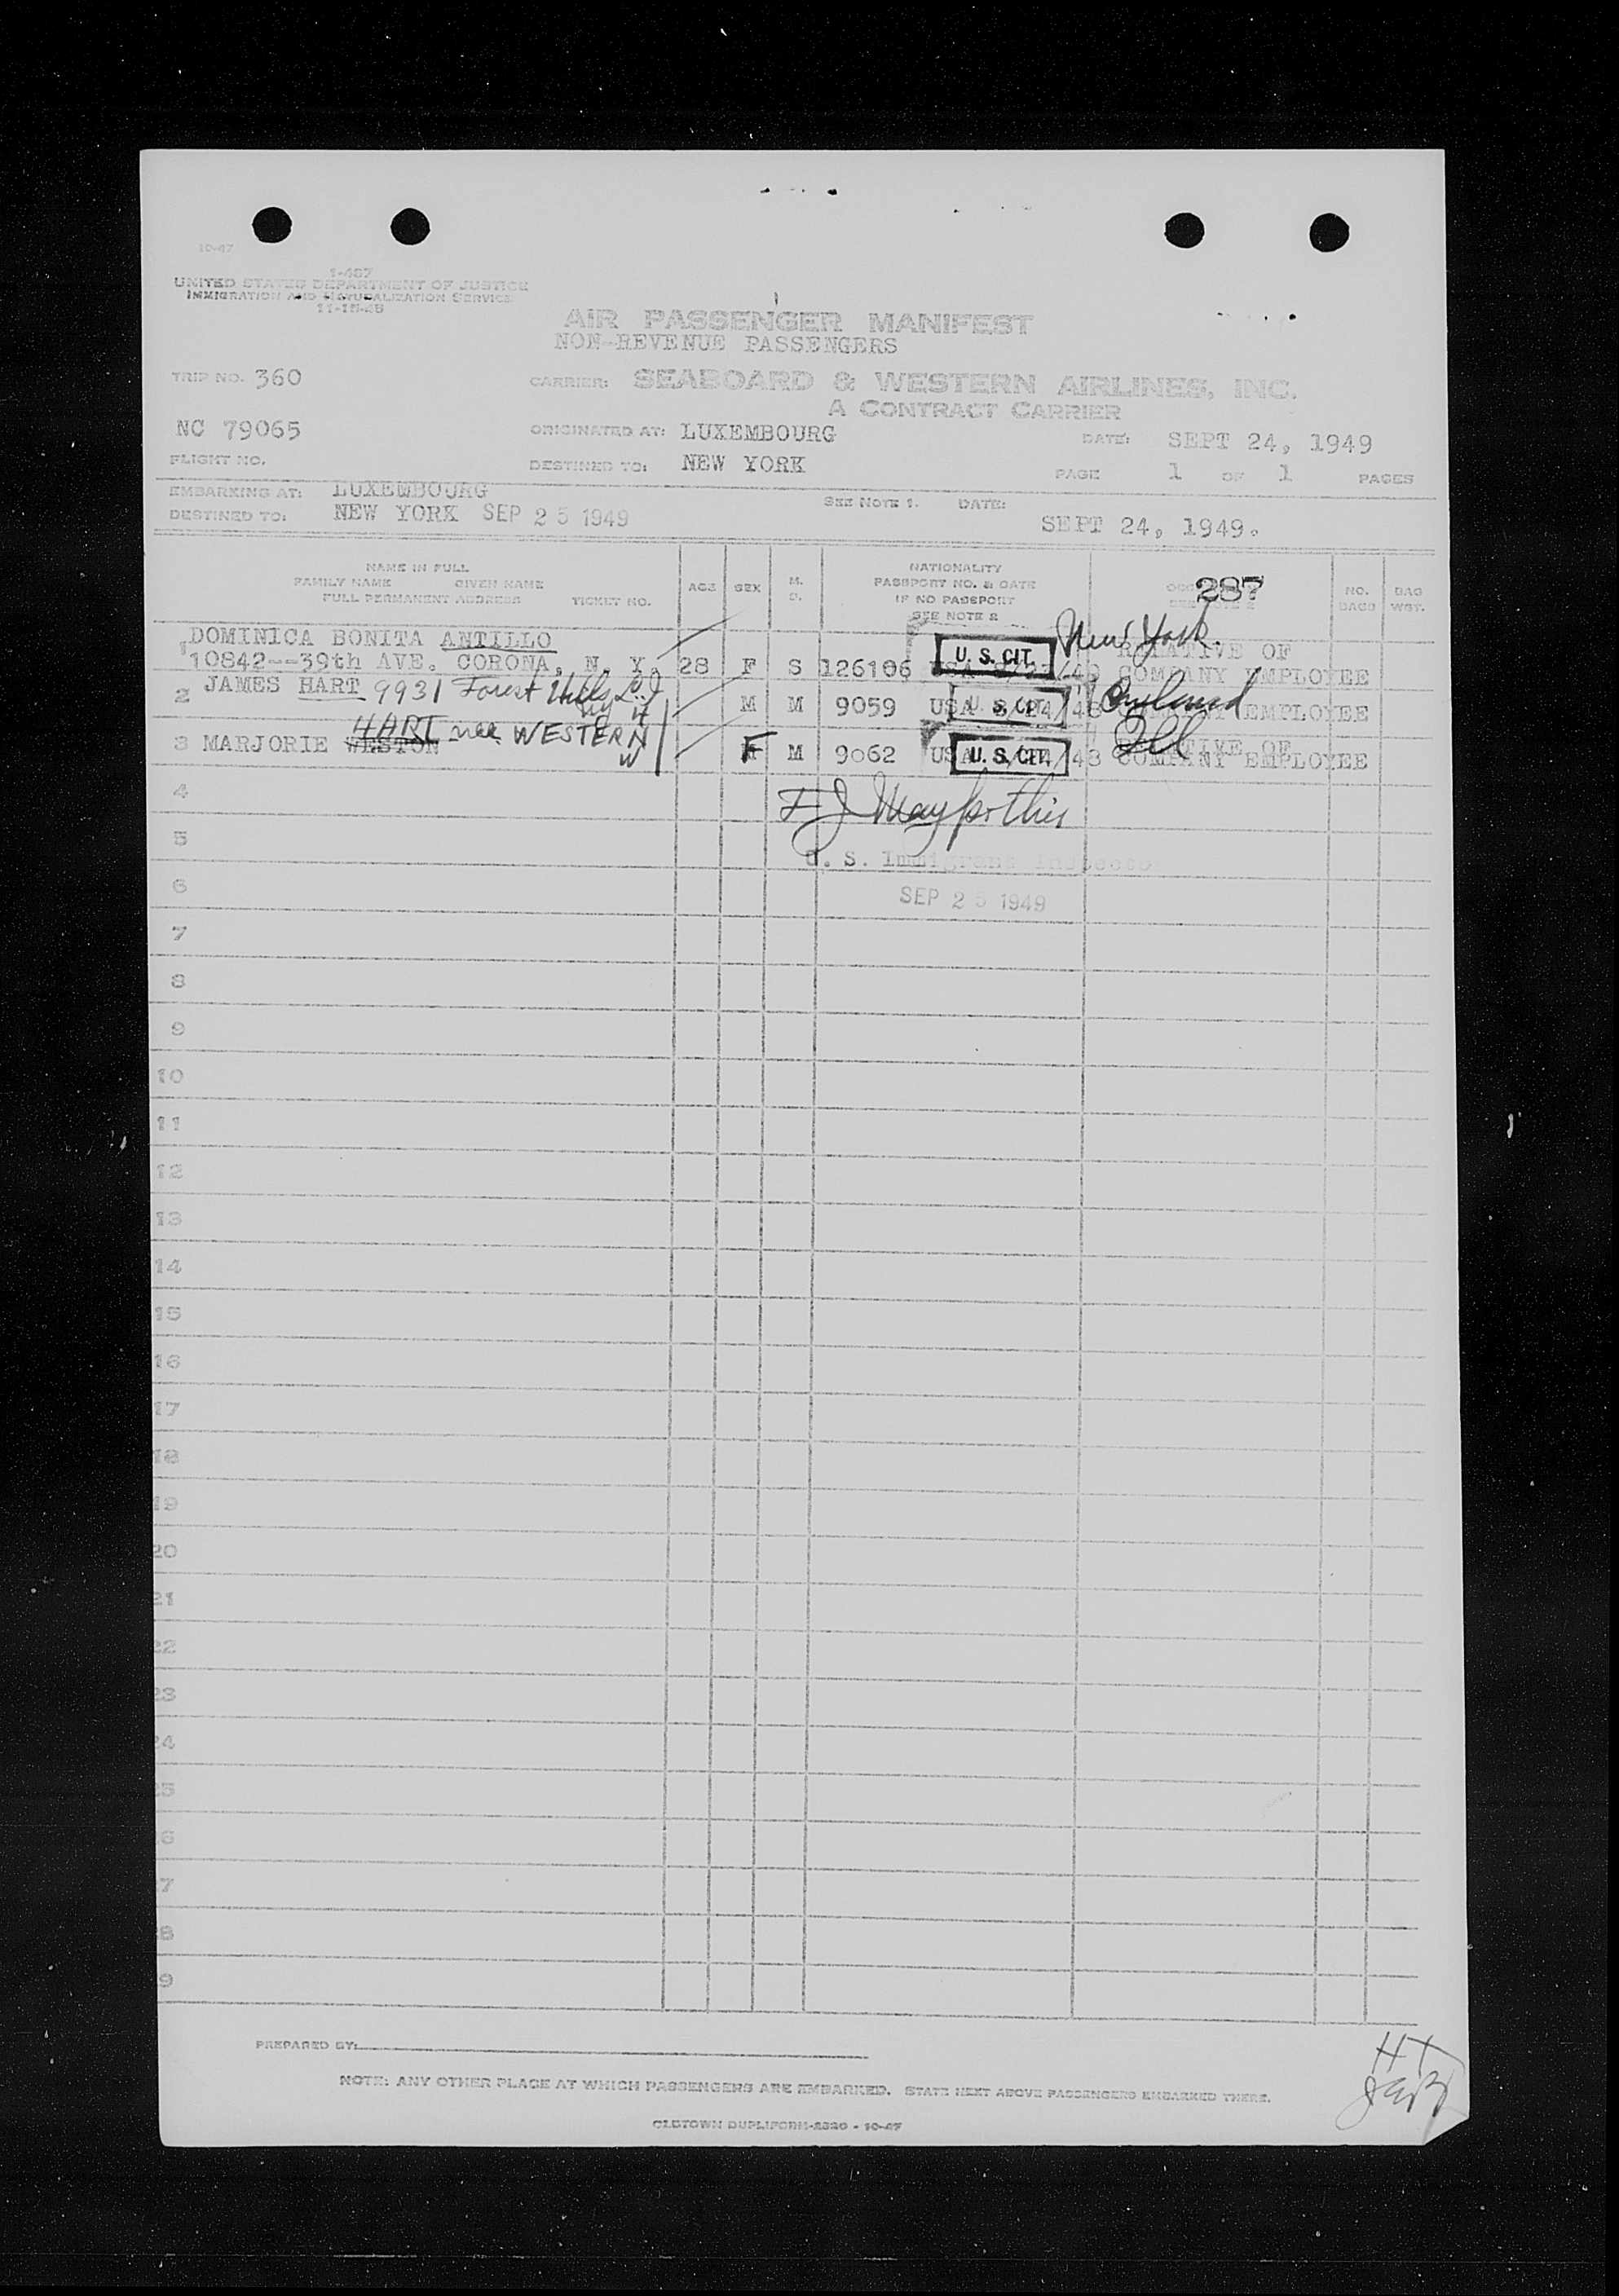 10-47
I-487
UNITED STATES DEPARTMENT OF JUSTICE
IMMIGRATION AND NATURALIZATION SERVICE
11-15-45
AIR PASSENGER MANIFEST
NON-REVENUE PASSENGERS
TRIP NO. 360
CARRIER: SEABOARD & WESTERN AIRLINES, INC.
A CONTRACT CARRIER
NC 79065
ORIGINATED AT: LUXEMBOURG
DATE: SEPT 24, 1949
FLIGHT NO.
DESTINED TO: NEW YORK
PAGE 1 OF 1 PAGES
EMBARKING AT: LUXEMBOURG
SEE NOTE 1. DATE:
DESTINED TO: NEW YORK SEP 25 1949
SEPT 24, 1949.
NAME IN FULL
FAMILY NAME GIVEN NAME
FULL PERMANENT ADDRESS TICKET NO.
AGE
SEX
M.
NATIONALITY
PASSPORT NO. & DATE
IF NO PASSPORT
SEE NOTE 2
287
NO.
BAGS
BAG
WGT.
1 DOMINICA BONITA ANTILLO New York. RELATIVE OF
10842--39th AVE. CORONA, N. Y. 28 F S 126106 USA U. S. CIT. COMPANY EMPLOYEE
2 JAMES HART 9931 Forest Hills L.I. M M 9059 USA U. S. CIT. COMPANY EMPLOYEE
NY H
HART nee WESTERN
3 MARJORIE WESTON W F M 9062 USA U. S. CIT. RELATIVE OF COMPANY EMPLOYEE
4
U. S. Immigrant Inspector
5
6
SEP 25 1949
7
8
9
10
11
12
13
14
15
16
17
18
19
20
21
22
23
24
25
26
27
28
29
PREPARED BY:
NOTE: ANY OTHER PLACE AT WHICH PASSENGERS ARE EMBARKED. STATE NEXT ABOVE PASSENGERS EMBARKED THERE.